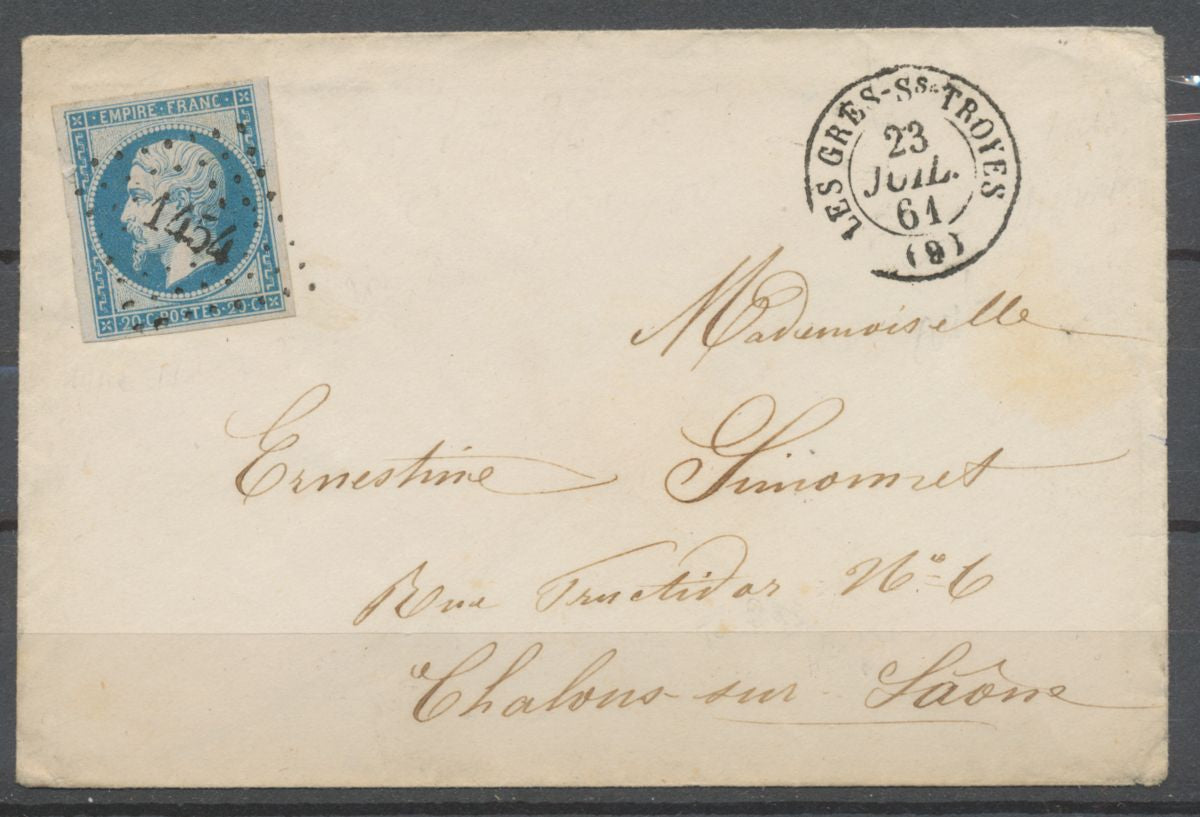 EMPIRE · FRANC ·
1454
20·C·POSTES·20·C
LES GRÈS-Ss-TROYES
23
JUIL.
61
(9)
Mademoiselle
Ernestine Simonnet
Rue Fructidor No 6
Chalons-sur-Saône